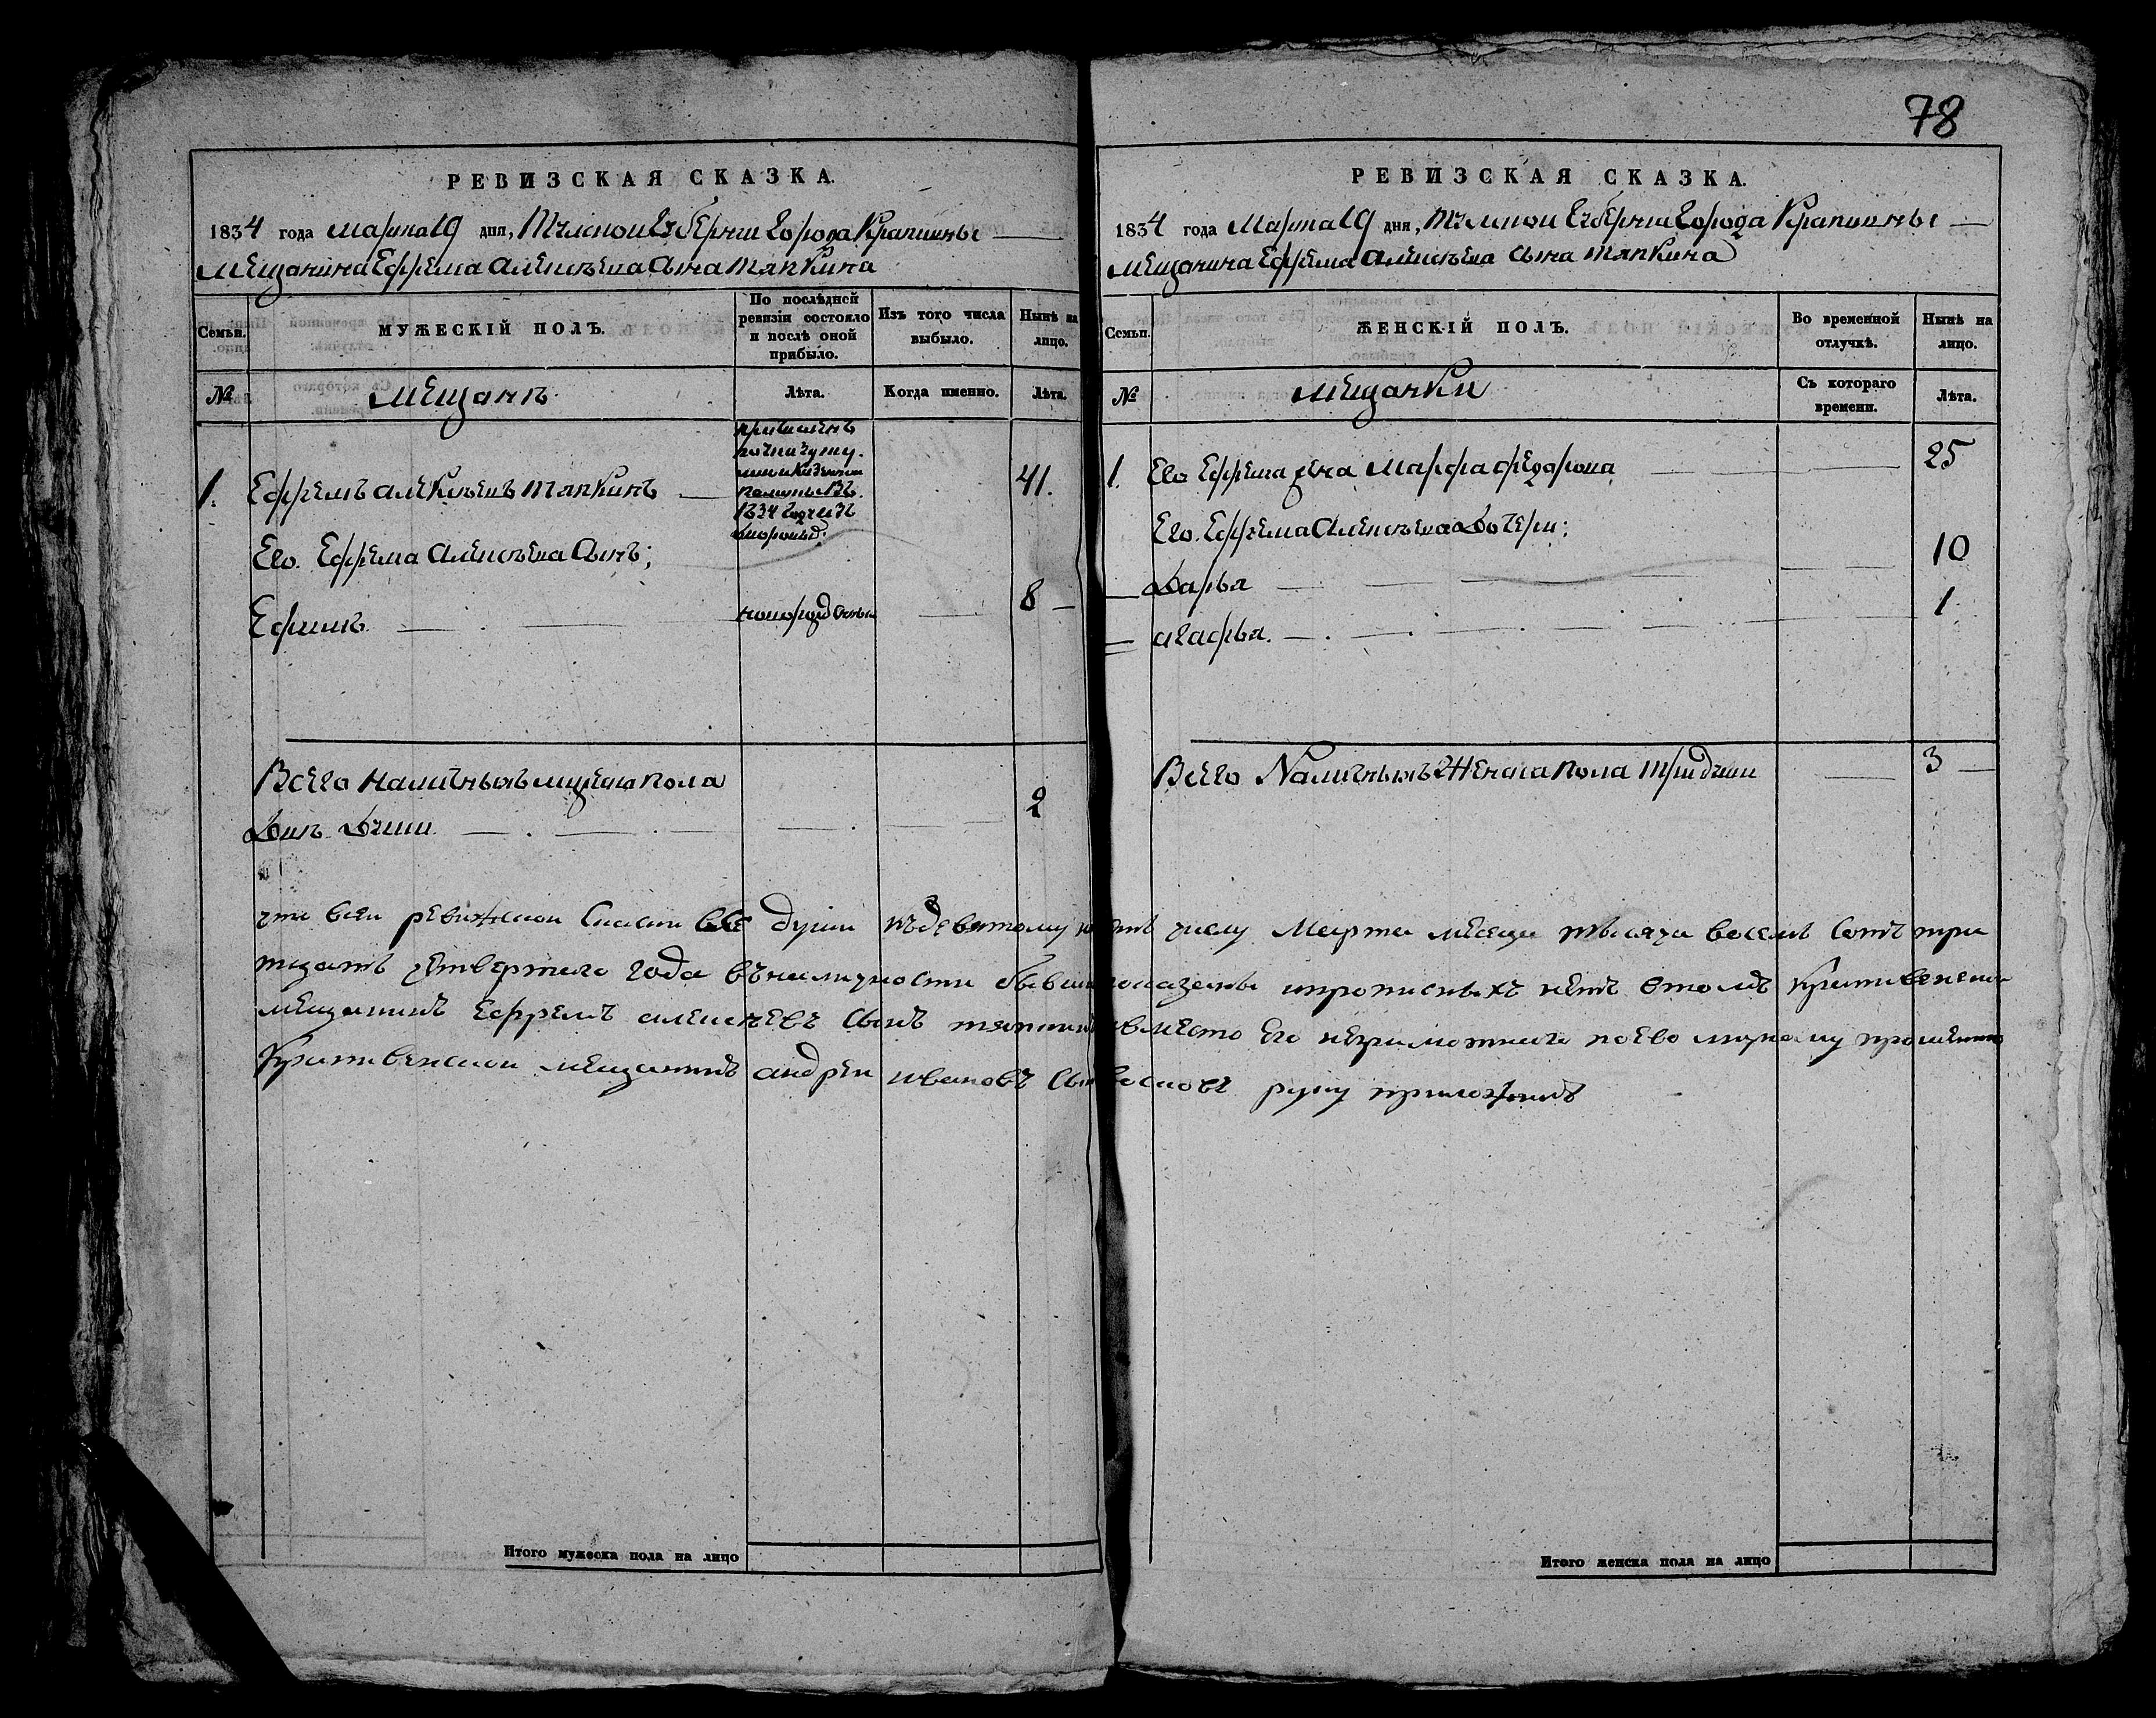 78
РЕВИЗСКАЯ СКАЗКА.
1834 года марта 19 дня, Тульской Губернии Города Крапивны
мещанина Ефрема Алексеева сына Тяпкина
Семьи.
МУЖЕСКІЙ ПОЛЪ.
По послѣдней ревизіи состояло и послѣ оной прибыло.
Изъ того числа выбыло.
Нынѣ на лицо.
№
мещанъ
Лѣта.
Когда именно.
Лѣта.
1. Ефремъ Алексѣевъ Тяпкинъ
причисленъ
палаты въ
1834 году изъ
41.
Его Ефрема Алексѣева сынъ;
Ефимъ
новорожденный
8
Всего наличныхъ мужска пола
двѣ души
2
Итого мужеска пола на лицо
РЕВИЗСКАЯ СКАЗКА.
1834 года Марта 19 дня, Тульской Губернии Города Крапивны
мещанина Ефрема Алексѣева сына Тяпкина
Семьи.
ЖЕНСКІЙ ПОЛЪ.
Во временной отлучкѣ.
Нынѣ на лицо.
№
мещанки
Съ котораго времени.
Лѣта.
1. Его Ефрема жена Марфа Федорова
25
Его Ефрема Алексѣева дочери:
Дарья
10
Агафья.
1
Всего Наличныхъ Женска пола три души
3
Итого женска пола на лицо
что всеи ревижскои Сказки все души къ девятому на числу Марта месяца тысяча восемь сотъ три
тцать четвертаго года въ наличности бывши показаны ипрописныхъ нетъ втомъ крапивенскои
мещанинъ Ефремъ алексеевъ сынъ тяпкинъ вместо Его неграмотнаго поево личному прошению
Крапивенскои мещанинъ андреи ивановъ руку приложилъ